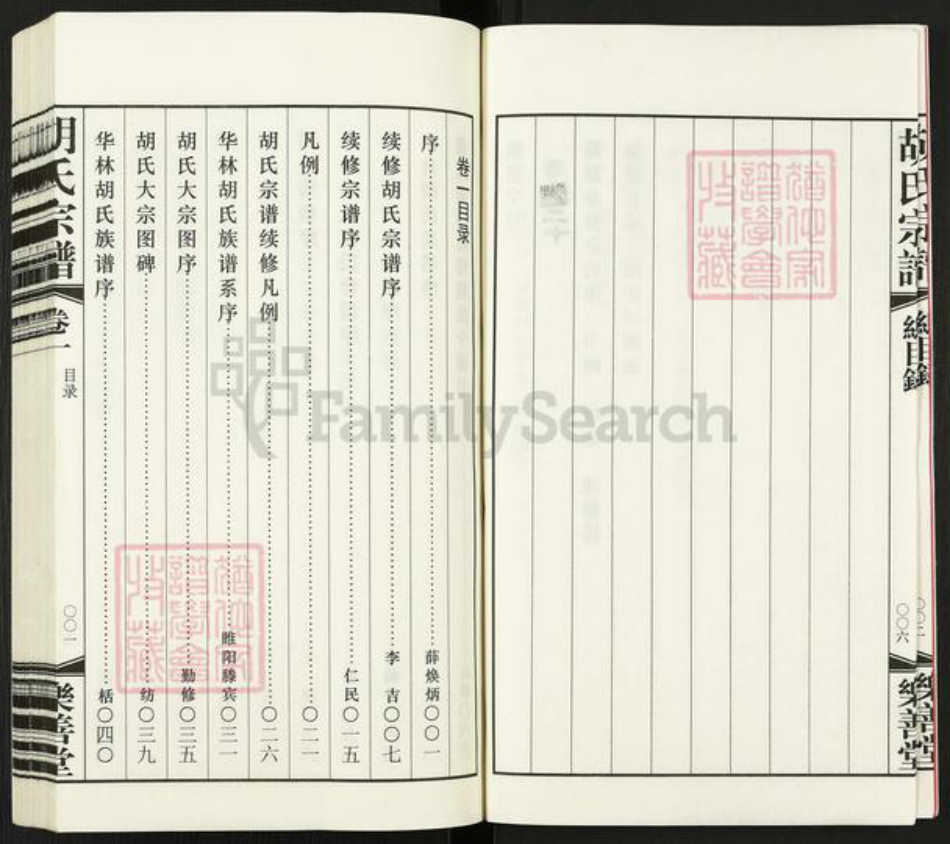 胡氏宗譜
總目錄
〇〇六
樂善堂
卷一目录
序……薛焕炳〇〇一
续修胡氏宗谱序……李 吉〇〇七
续修宗谱序……仁民〇一五
凡例……〇二一
胡氏宗谱续修凡例……〇二六
华林胡氏族谱系序……睢阳滕宾〇三一
胡氏大宗图序……勤修〇三五
胡氏大宗图碑……纺〇三九
华林胡氏族谱序……栝〇四〇
胡氏宗谱
卷一
目录
〇〇一
樂善堂
FamilySearch
譜學會